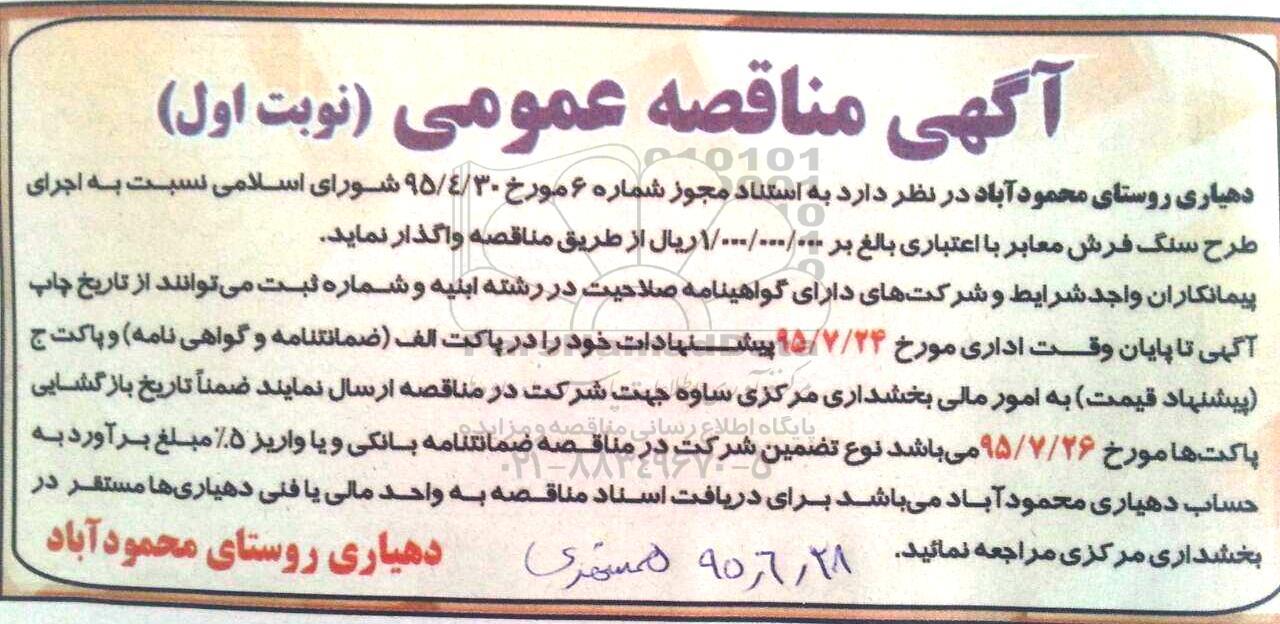 آگهی مناقصه عمومی (نوبت اول)
دهیاری روستای محمودآباد در نظر دارد به استناد مجوز شماره ۶ مورخ ۹۵/٤/۳۰ شورای اسلامی نسبت به اجرای
طرح سنگ فرش معابر با اعتباری بالغ بر ۱/۰۰۰/۰۰۰/۰۰۰ ریال از طریق مناقصه واگذار نماید.
پیمانکاران واجد شرایط و شرکت‌های دارای گواهینامه صلاحیت در رشته ابنیه و شماره ثبت می‌توانند از تاریخ چاپ
آگهی تا پایان وقت اداری مورخ ۹۵/۷/۲۴ پیشنهادات خود را در پاکت الف (ضمانتنامه و گواهی نامه) و پاکت ج
(پیشنهاد قیمت) به امور مالی بخشداری مرکزی ساوه جهت شرکت در مناقصه ارسال نمایند ضمناً تاریخ بازگشایی
پاکت‌ها مورخ ۹۵/۷/۲۶ می‌باشد نوع تضمین شرکت در مناقصه ضمانتنامه بانکی و یا واریز ۵٪ مبلغ برآورد به
حساب دهیاری محمودآباد می‌باشد برای دریافت اسناد مناقصه به واحد مالی یا فنی دهیاری‌ها مستقر در
بخشداری مرکزی مراجعه نمائید.
۹۵٫۶٫۲۸ همشهری
دهیاری روستای محمودآباد
پایگاه اطلاع رسانی مناقصه و مزایده
۰۲۱-۸۸۳۴۹۶۷۰-۵